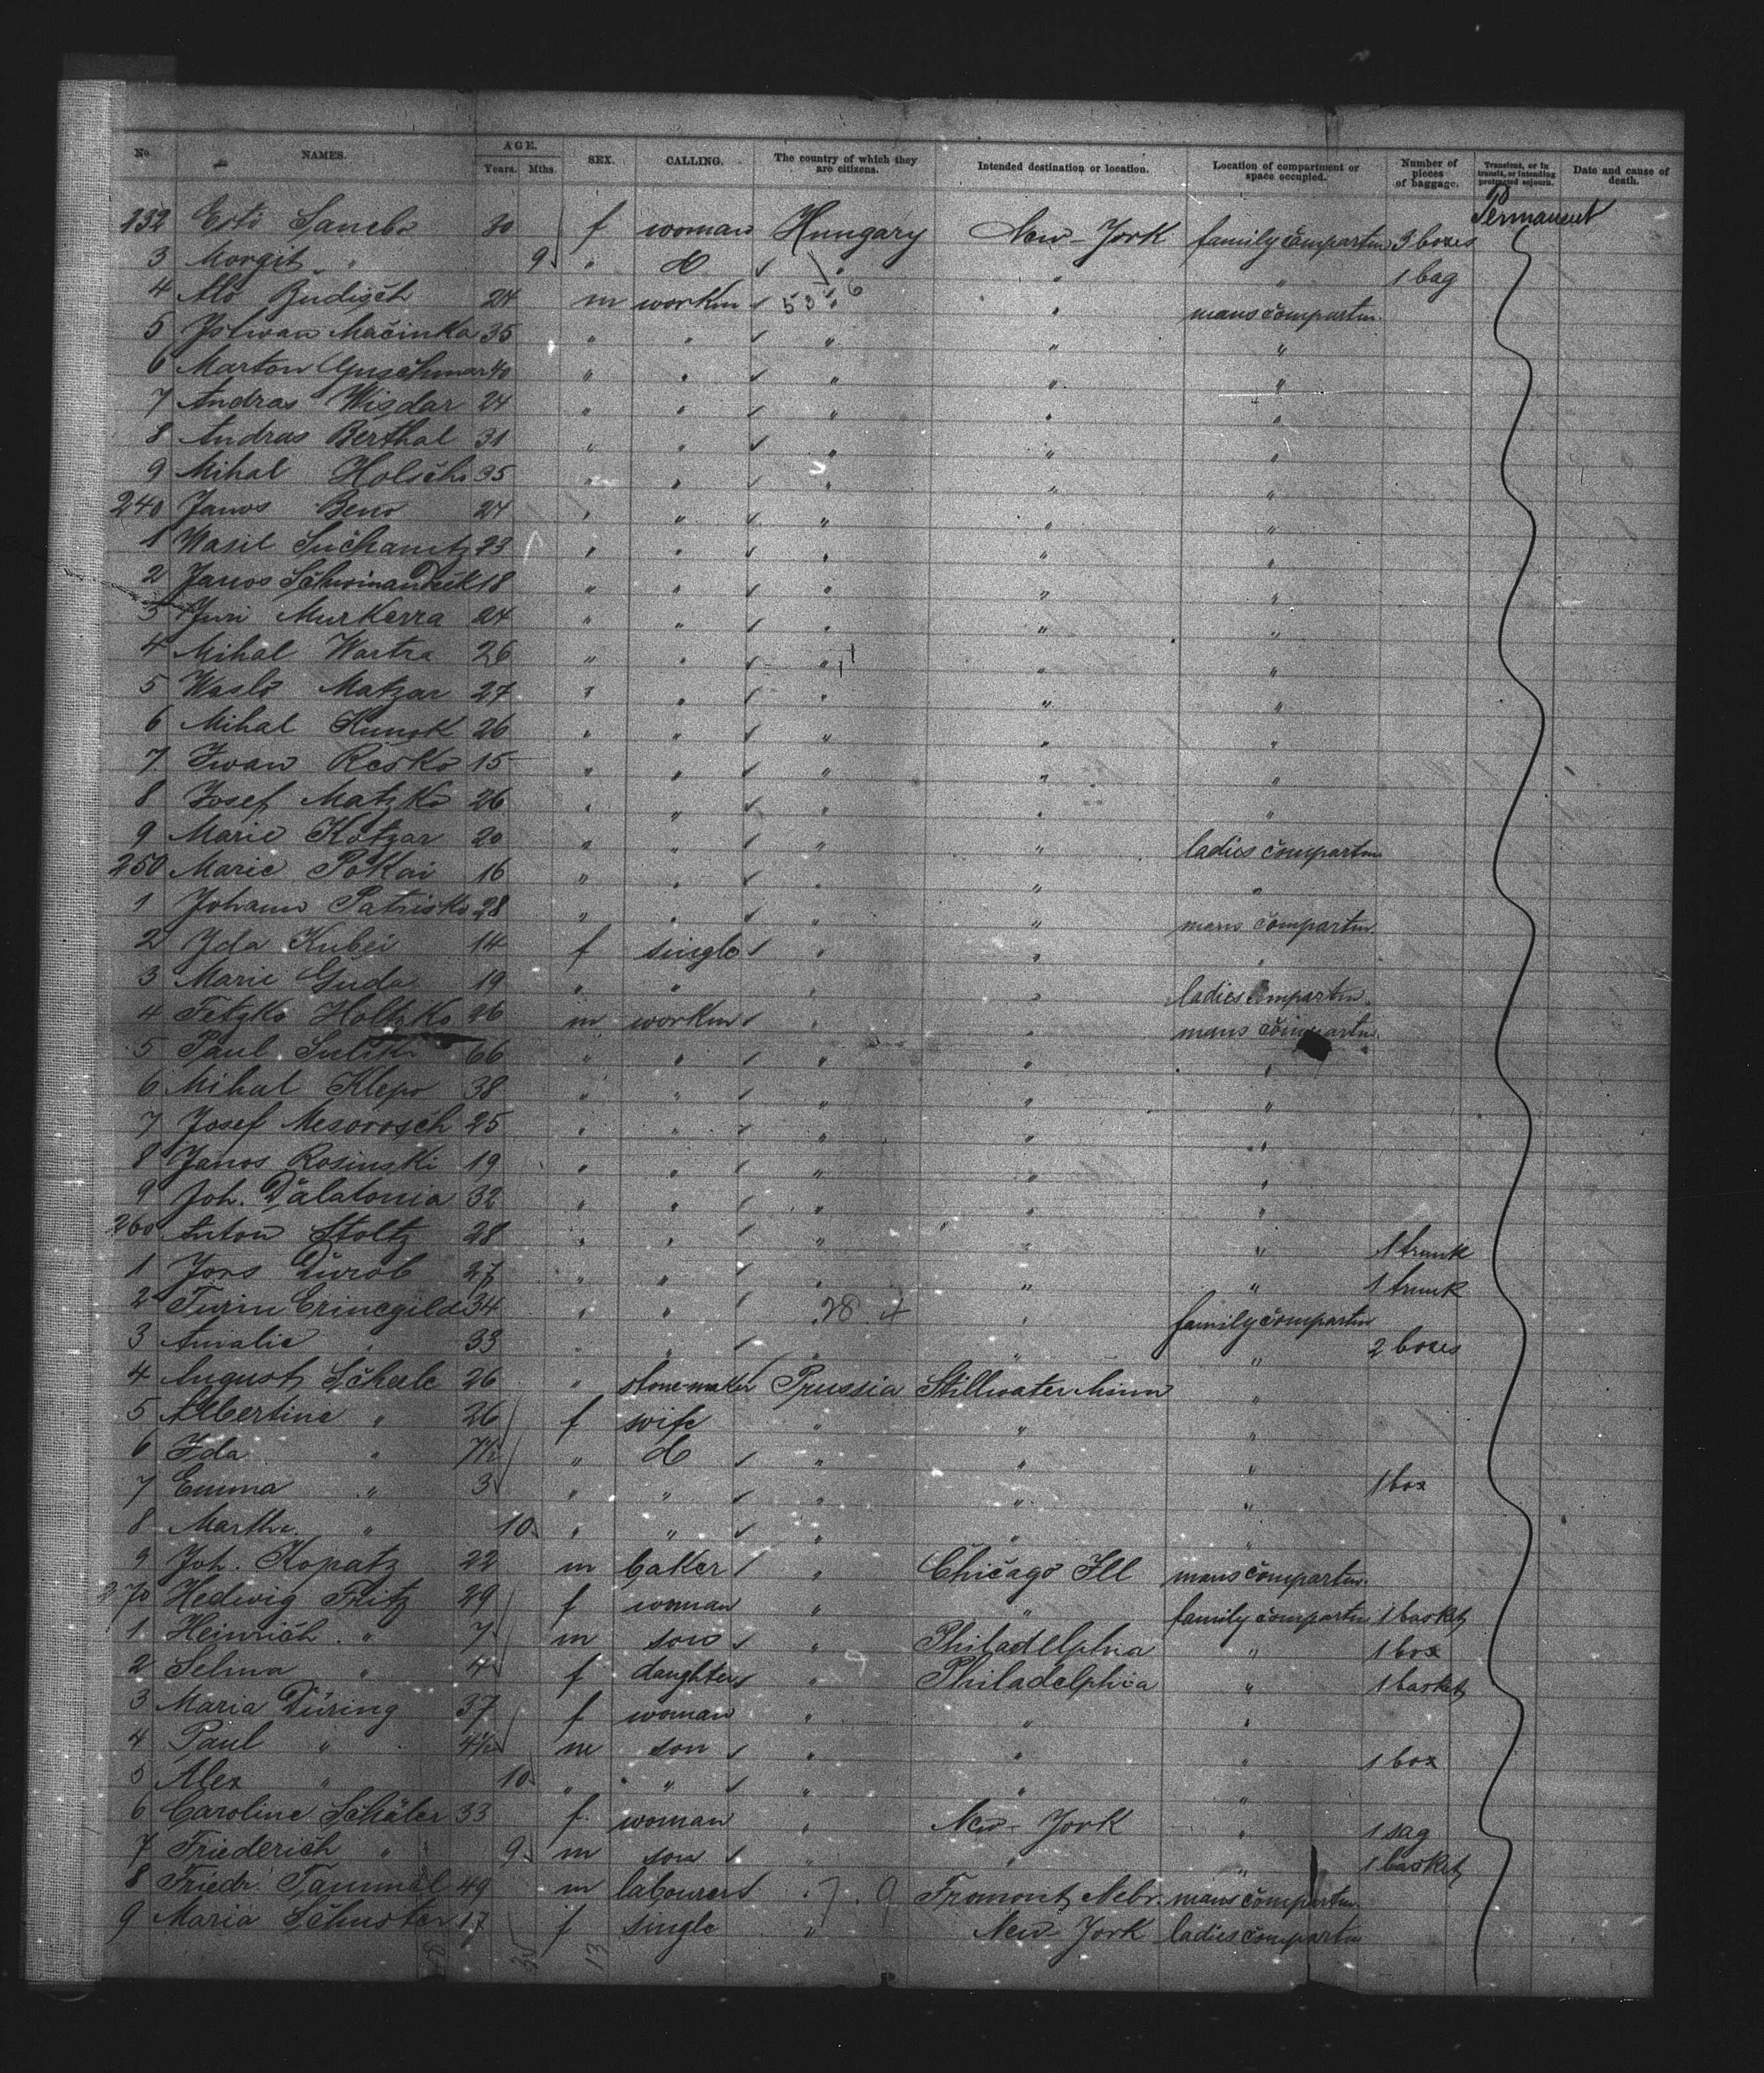 No. NAMES. AGE. Years. Mths. SEX. CALLING. The country of which they are citizens. Intended destination or location. Location of compartment or space occupied. Number of pieces of baggage. Transient, or in transit, or intending protracted sojourn. Date and cause of death.
Permanent
232 30 f woman Hungary New-York family compartm 3 boxes
3 Morgit " 9 " do " " " 1 bag
4 Budisch 24 m workm " " mans compartm.
5 Macinka 35 " " " " "
6 Marton Guschman 40 " " " " "
7 Andras Wisdar 24 " " " " "
8 Andras Berthal 31 " " " " "
9 Mihal Holscho 35 " " " " "
240 Janos Beno 24 " " " " "
1 Wasil Suchanitz 23 " " " " "
2 Janos 18 " " " " "
3 Juri Murkerra 24 " " " " "
4 Mihal Wartza 26 " " " " "
5 Waslo Matzar 27 " " " " "
6 Mihal Hunok 26 " " " " "
7 Iwan Resko 15 " " " " "
8 Josef Matzko 26 " " " " "
9 Marie Kotzar 20 " " " " ladies compartm
250 Marie Pokai 16 " " " " "
1 Johann Patrisko 28 " " " " mans compartm.
2 Ida Kubei 14 f single " " "
3 Marie Guda 19 " " " " ladies compartm.
4 Tetzko Holtzko 26 m workm " " mans compartm.
5 Paul 66 " " " " "
6 Mihal Klepo 38 " " " " "
7 Josef Mesorosch 25 " " " " "
8 Janos Rosinski 19 " " " " "
9 Joh. Dalatonia 32 " " " " "
260 Anton Stoltz 28 " " " " " 1 trunk
1 Jors Durob 27 " " " " " 1 trunk
2 34 " " 28 4 " family compartm
3 Amalie " 33 " " " " " 2 boxes
4 August Scheele 26 " stone-maker Prussia Stillwater Minn "
5 Albertine " 26 f wife " " "
6 Ida " 7½ " do " " "
7 Emma " 3 " " " " " 1 box
8 Marthe " 10 " " " " "
9 Joh. Kopatz 22 m baker " Chicago Ill mans compartm.
270 Hedwig Fritz 29 f woman " " family compartm 1 basket
1 Heinrich " 7 m son " Philadelphia " 1 box
2 Selma " 4 f daughter " Philadelphia " 1 basket
3 Maria Düring 37 f woman " " "
4 Paul " 4½ m son " " " 1 box
5 Alex " 10 " " " " "
6 Caroline Schäler 33 f. woman " New-York " 1 sag
7 Friederich " 9 m son " " " 1 basket
8 Friedr. Tammal 49 m labourer " 7. 9 Fromont Nebr. mans compartm.
9 Maria Schuster 17 f single " New-York ladies compartm
13